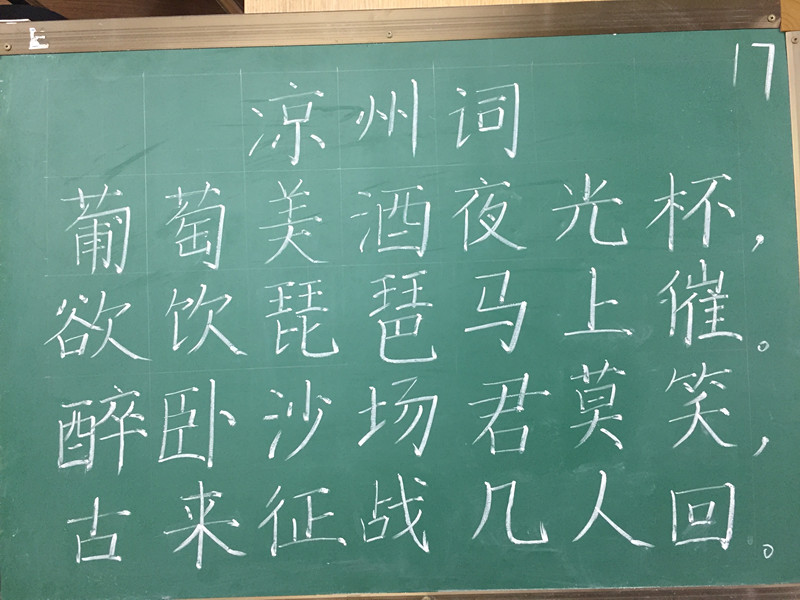 17
凉州词
葡萄美酒夜光杯，
欲饮琵琶马上催。
醉卧沙场君莫笑，
古来征战几人回。